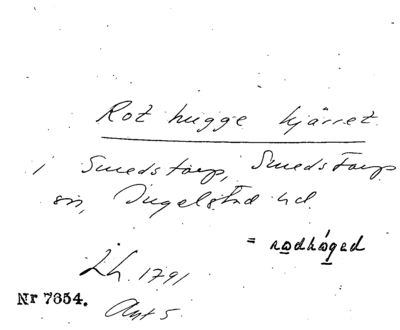 Rot hugge kjärret
i Smedstorp, Smedstorps
sn, Ingelstad hd.
= rødhøged
Lh. 1791
Nr 7654.
Akt 5